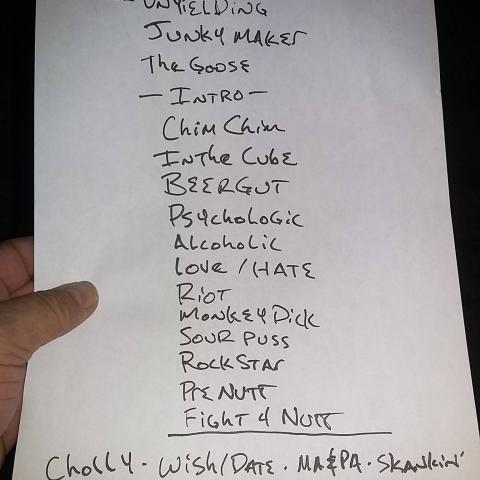 UNYIELDING
JUNKY MAKER
The GOOSE
— INTRO —
Chim Chim
In The CUBE
BEERGUT
PSYchoLoGic
ALCOHOLIC
LOVE / HATE
RiOT
MONKEY DiCK
SOUR PUSS
ROCKSTAR
PRE NUTT
FIGHT 4 NUTT
ChoLLY · WISH/DATE · MA&PA · SKANKIN'